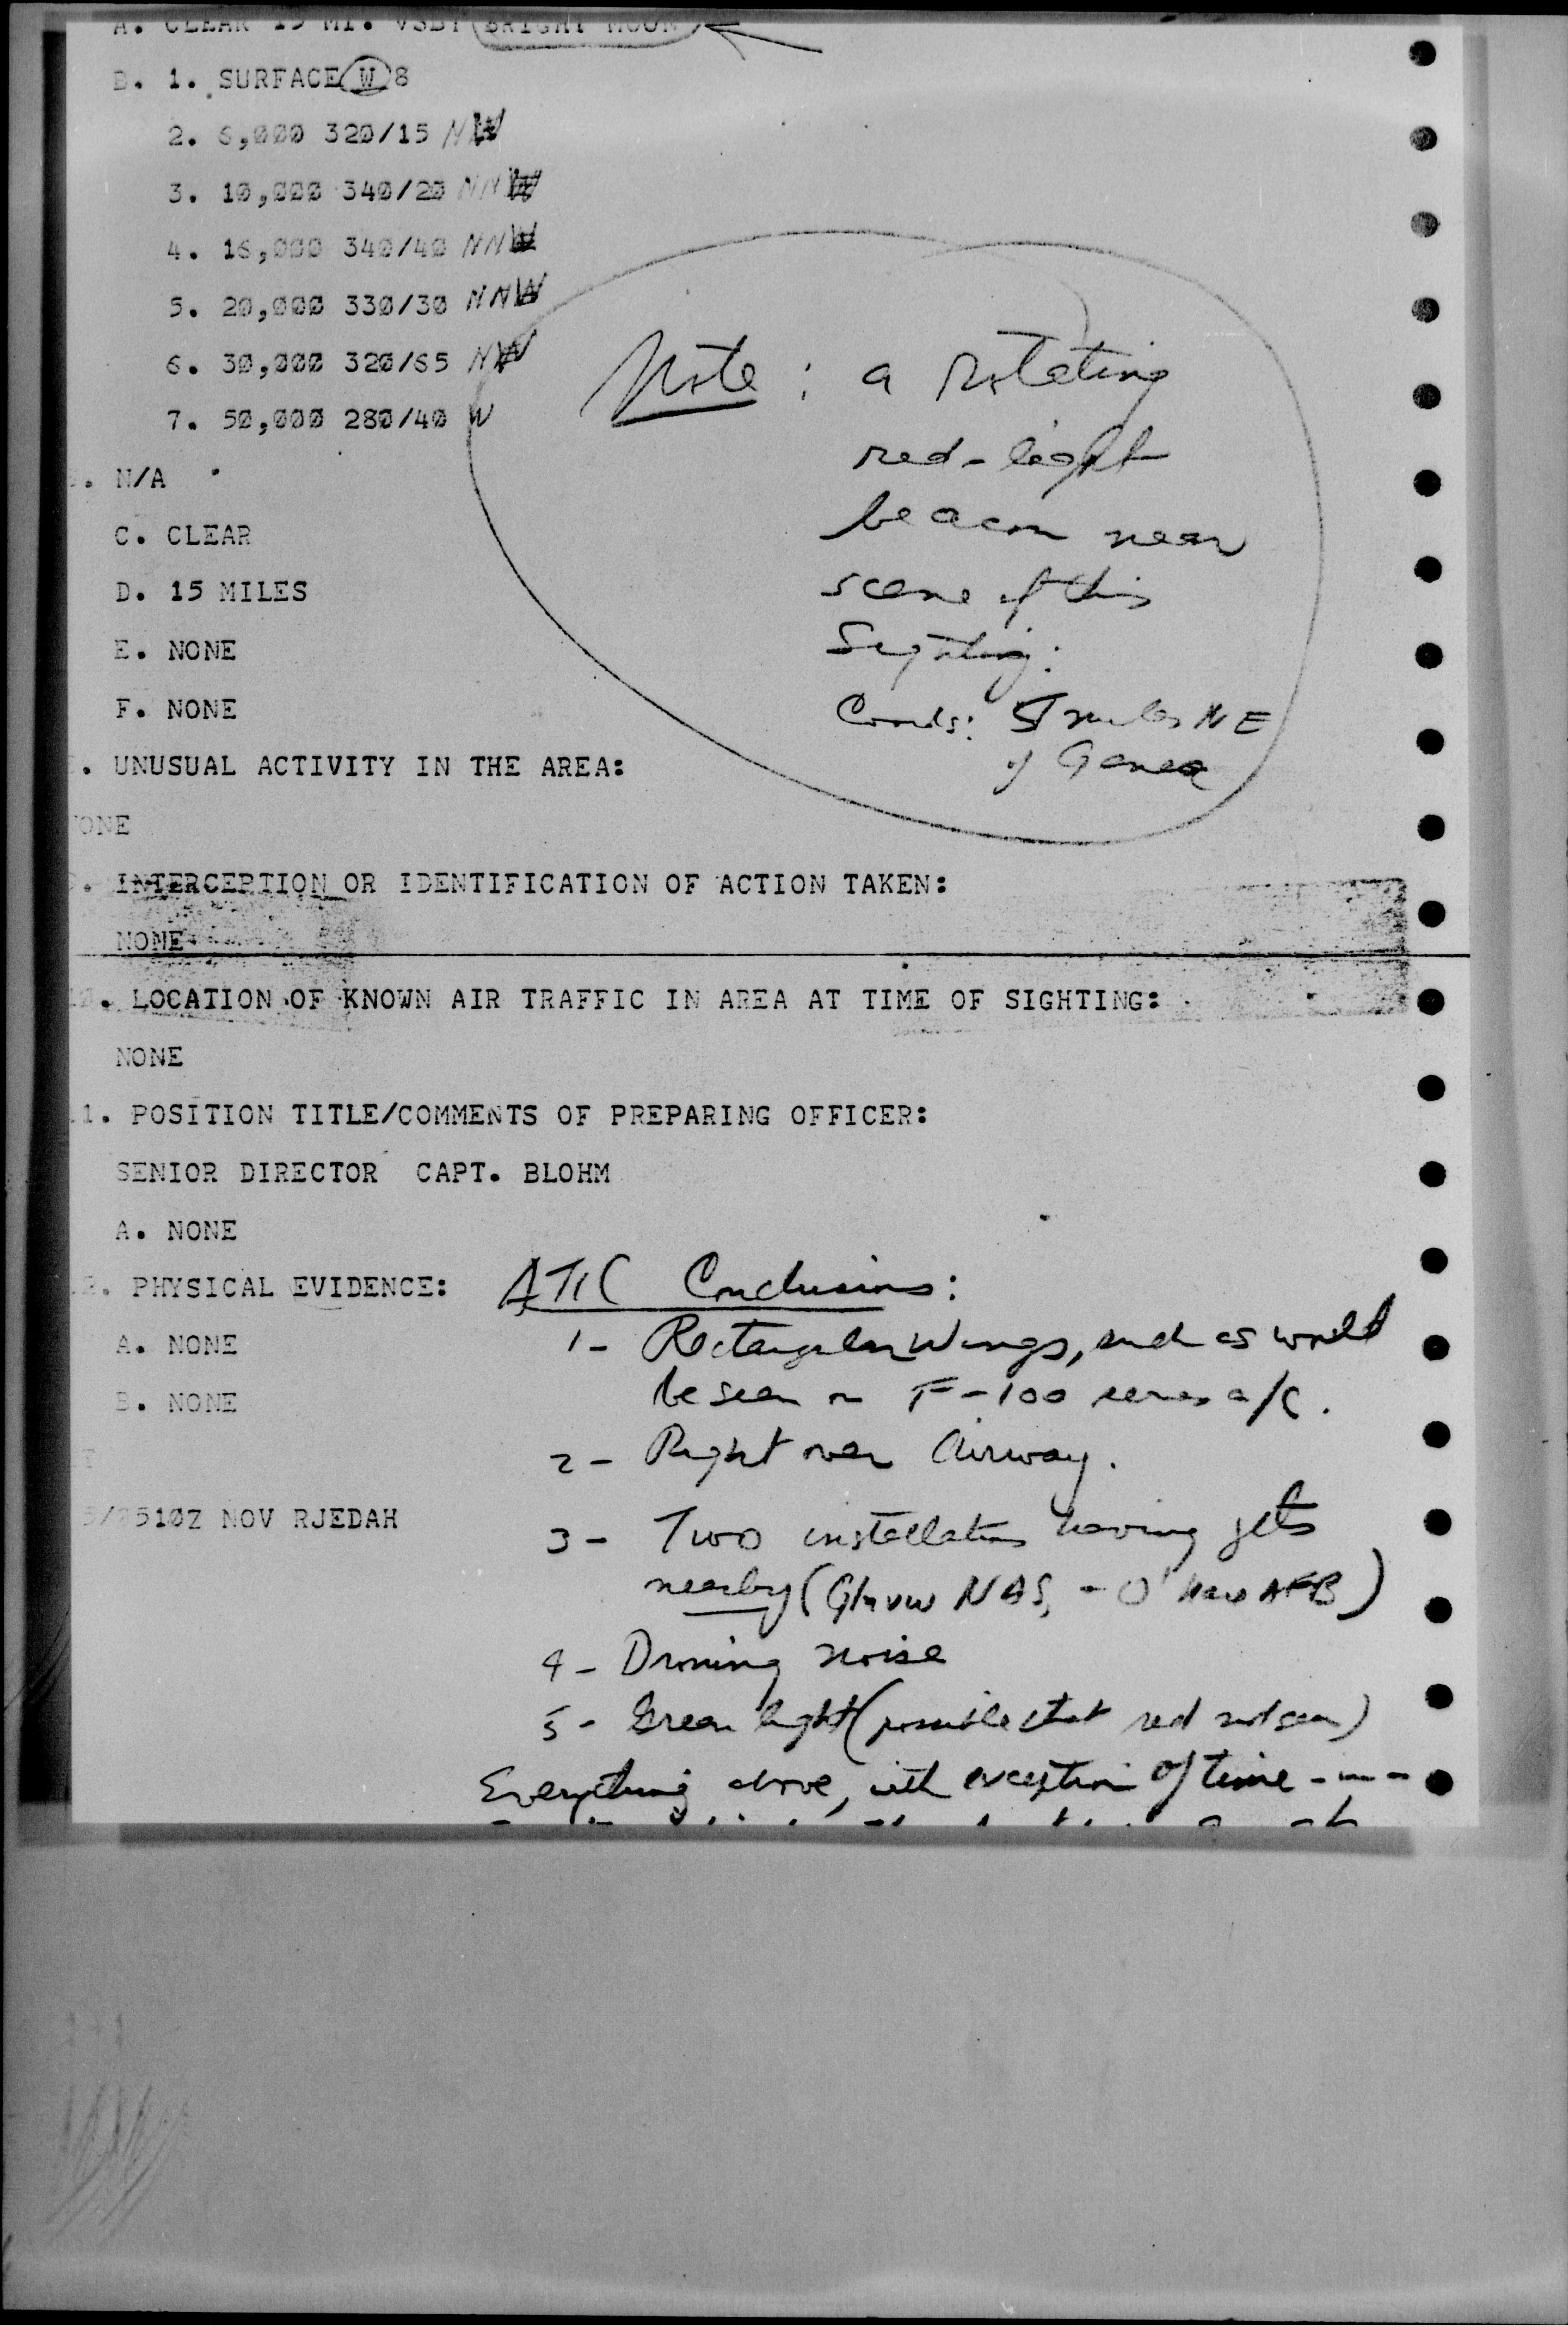 A. CLEAR 15 MI. VSBY BRIGHT MOON
B. 1. SURFACE W 8
2. 6,000 320/15 NW
3. 10,000 340/20 NNW
4. 16,000 340/40 NNW
5. 20,000 330/30 NNW
6. 30,000 320/65 NW
7. 50,000 280/40 W
Note: a rotating
red-light
beacon near
scene of this
Sighting.
Coords: 5 miles NE
of
. N/A
C. CLEAR
D. 15 MILES
E. NONE
F. NONE
. UNUSUAL ACTIVITY IN THE AREA:
ONE
. INTERCEPTION OR IDENTIFICATION OF ACTION TAKEN:
NONE
. LOCATION OF KNOWN AIR TRAFFIC IN AREA AT TIME OF SIGHTING:
NONE
1. POSITION TITLE/COMMENTS OF PREPARING OFFICER:
SENIOR DIRECTOR CAPT. BLOHM
A. NONE
2. PHYSICAL EVIDENCE:
A. NONE
B. NONE
5/2510Z NOV RJEDAH
ATIC Conclusions:
1- Rectangular Wings, such as would
be seen on F-100 series a/c.
2- Right over Airway.
3- Two installations having jets
nearby (Glnvw NAS, - O'Hare AFB)
4- Droning noise
5- Green light (possible that red not seen)
Everything above, with exception of time ---